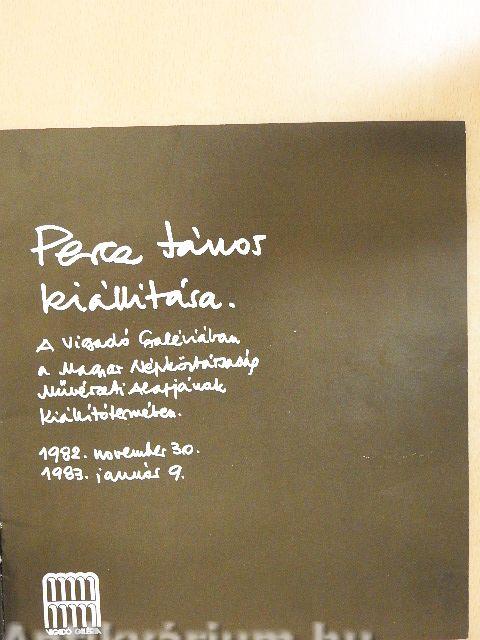 Perca János
kiállítása.
A Vigadó Galériában
a Magyar Népköztársaság
Művészeti Alapjának
kiállítótermében.
1982. november 30.
1983. január 9.
VIGADÓ GALÉRIA
Antikvárium.hu